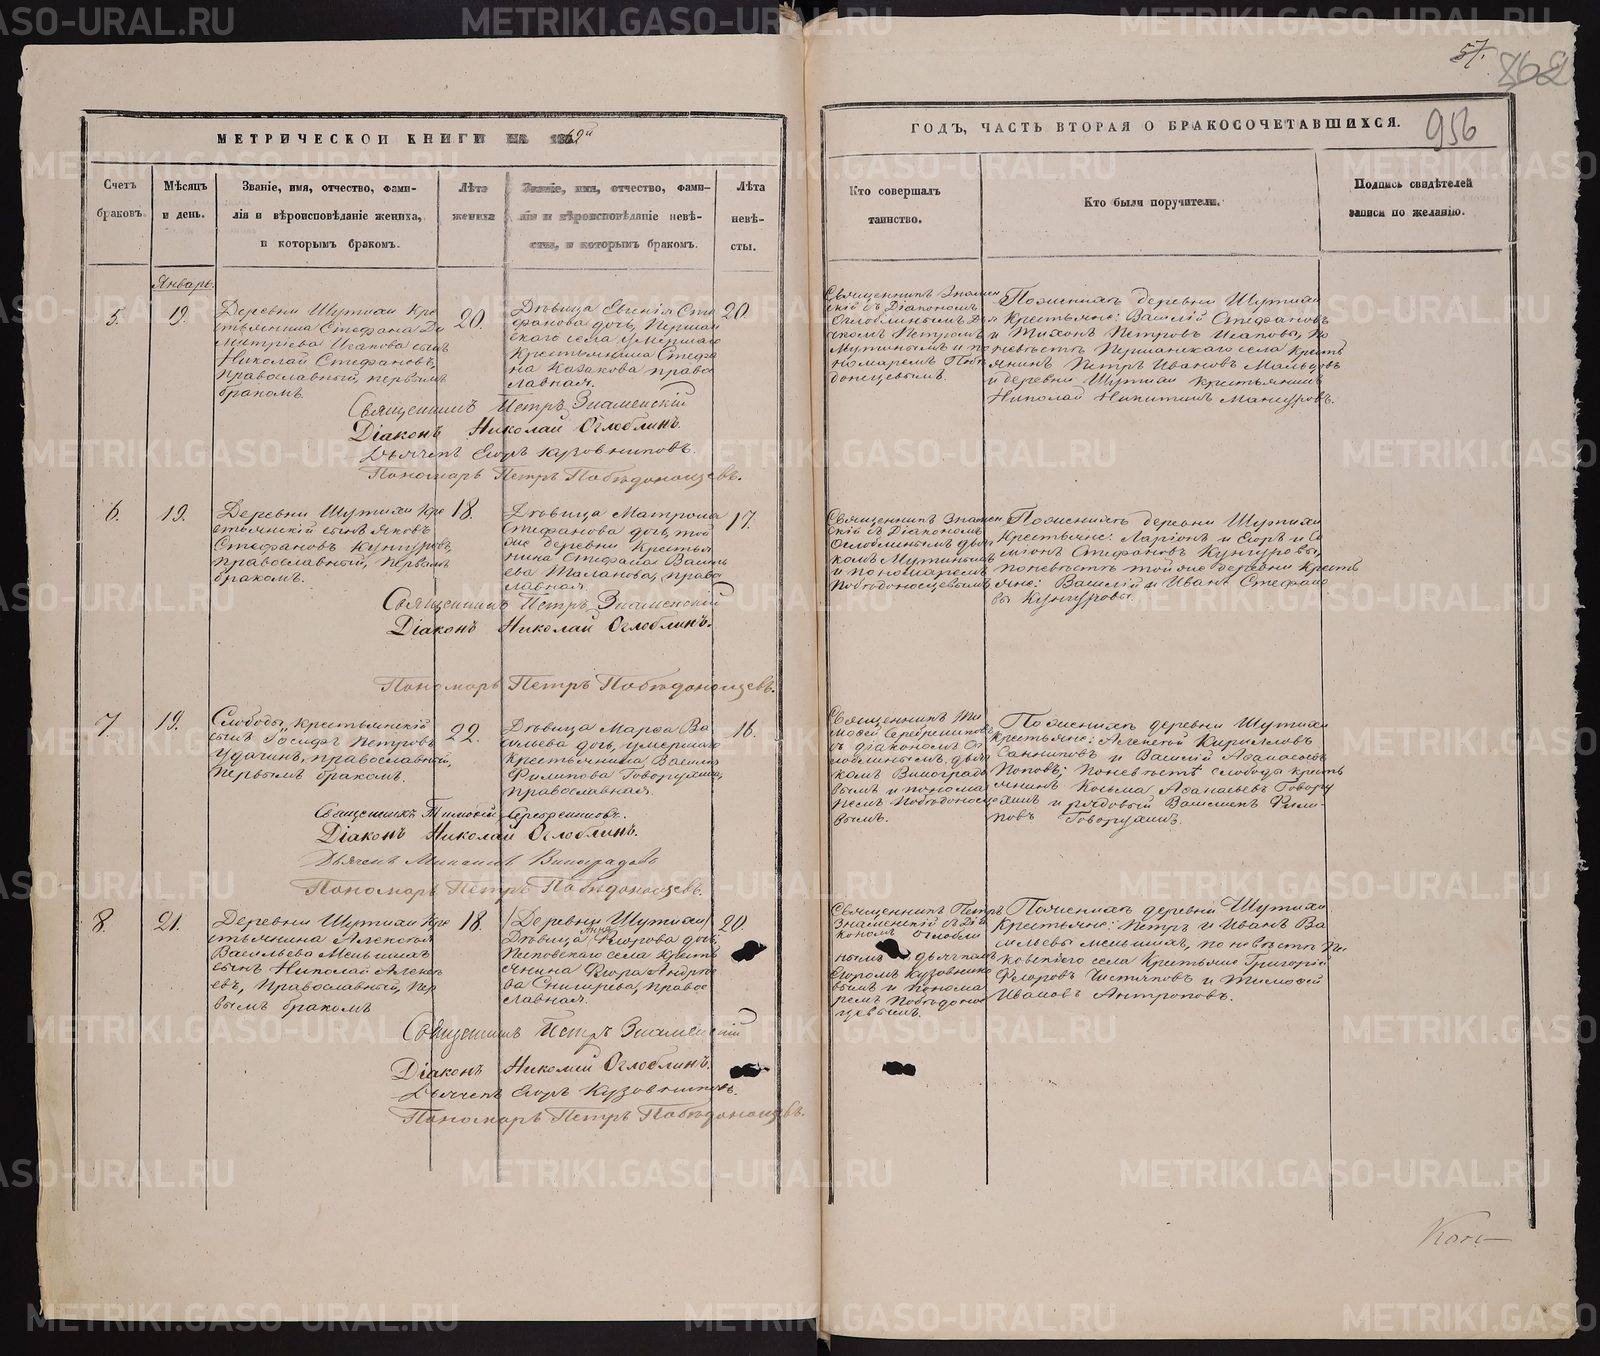 57.
862
956
МЕТРИЧЕСКОЙ КНИГИ НА 1869й
ГОДЪ, ЧАСТЬ ВТОРАЯ О БРАКОСОЧЕТАВШИХСЯ.
Счетъ браковъ.
Мѣсяцъ и день.
Званіе, имя, отчество, фами-
лія и вѣроисповѣданіе жениха,
и которымъ бракомъ.
Лѣта жениха
Званіе, имя, отчество, фами-
лія и вѣроисповѣданіе невѣ-
сты, и которымъ бракомъ.
Лѣта невѣ-
сты.
Кто совершалъ
таинство.
Кто были поручители.
Подпись свидѣтелей
записи по желанію.
Январь.
5.
19.
Деревни Шутихи Кре
стьянина Стефана Ди
митріева Исакова сынъ
Николай Стефановъ,
православный, первымъ
бракомъ.
20.
Дѣвица Евгенія Сте
фанова дочь, Першин
скаго села умершаго
Крестьянина Стефа
на Казакова право
славная.
20.
Священникъ Знамен
скій съ Діакономъ
Оглоблинымъ Дья
чкомъ Петромъ
Мутинымъ и по
номаремъ Побѣ
доносцевымъ.
По женихѣ деревни Шутихи
Крестьяне: Василій Стефановъ
и Тихонъ Петровъ Исаковы, по
невѣстѣ Першинскаго села Кресть
янинъ Петръ Ивановъ Мальцовъ
и деревни Шутихи крестьянинъ
Николай Никитинъ Мансуровъ.
Священникъ Петръ Знаменскій
Діаконъ Николай Оглоблинъ.
Дьячекъ Егоръ Кузовниковъ.
Пономарь Петръ Побѣдоносцевъ.
6.
19.
Деревни Шутихи Кре
стьянскій сынъ Яковъ
Стефановъ Кунгуровъ,
православный, первымъ
бракомъ.
18.
Дѣвица Матрона
Стефанова дочь, той
же деревни Крестья
нина Стефана Василь
ева Таланова, право
славная.
17.
Священникъ Знамен
скій съ Діакономъ
Оглоблинымъ дьяч
комъ Мутинымъ
и пономаремъ
Побѣдоносцевымъ
По женихѣ деревни Шутихи
Крестьяне: Ларіонъ и Егоръ и Се
міонъ Стефановъ Кунгуровы,
по невѣстѣ той же деревни Кресть
яне: Василій и Иванъ Стефано
вы Кунгуровы.
Священникъ Петръ Знаменскій
Діаконъ Николай Оглоблинъ.
Пономарь Петръ Побѣдоносцевъ.
7.
19.
Слободы, крестьянскій
сынъ Іосифъ Петровъ
Удачинъ, православный,
первымъ бракомъ.
22.
Дѣвица Марѳа Ва
сильева дочь, умершаго
крестьянина Василья
Филипова Говорухина,
православная.
16.
Священникъ Ти
моѳей Серебрениковъ
съ діакономъ Ог
лоблинымъ, дьяч
комъ Виноградо
вымъ и понома
ремъ Побѣдоносце
вымъ.
По женихѣ деревни Шутихи
крестьяне: Алексѣй Кириловъ
Санниковъ и Василій Аѳанасьевъ
Поповъ; По невѣстѣ слободы кресть
янинъ Козьма Аѳанасьевъ Говору
хинъ и рядовый Василій Фили-
повъ Говорухинъ.
Священникъ Тимоѳей Серебрениковъ.
Діаконъ Николай Оглоблинъ.
Пономарь Петръ Побѣдоносцевъ.
8.
21.
Деревни Шутихи Кре
стьянина Алексѣя
Васильева Меньшихъ
сынъ Николай Алексѣ
евъ, Православный, пер
вымъ бракомъ
18.
/Деревни Шутихи/
Дѣвица Анна Ѳедорова дочь,
Песковскаго села Кресть
янина Ѳедора Андрѣе
ва Снигирева, право
славная.
20.
Священникъ Петръ
Знаменскій съ Діа
кономъ Оглобли
нымъ дьячкомъ
Егоромъ Кузовнико
вымъ и понома
ремъ Побѣдонос
цевымъ.
По женихѣ деревни Шутихи
Крестьяне: Петръ и Иванъ Ва
сильевы Меньшихъ, по невѣстѣ Пес
ковскаго села Крестьяне Григорій
Ѳедоровъ Чистяковъ и Тимоѳей
Ивановъ Антроповъ.
Священникъ Петръ Знаменскій
Діаконъ Николай Оглоблинъ.
Дьячекъ Егоръ Кузовниковъ.
Пономарь Петръ Побѣдоносцевъ.
METRIKI.GASO-URAL.RU